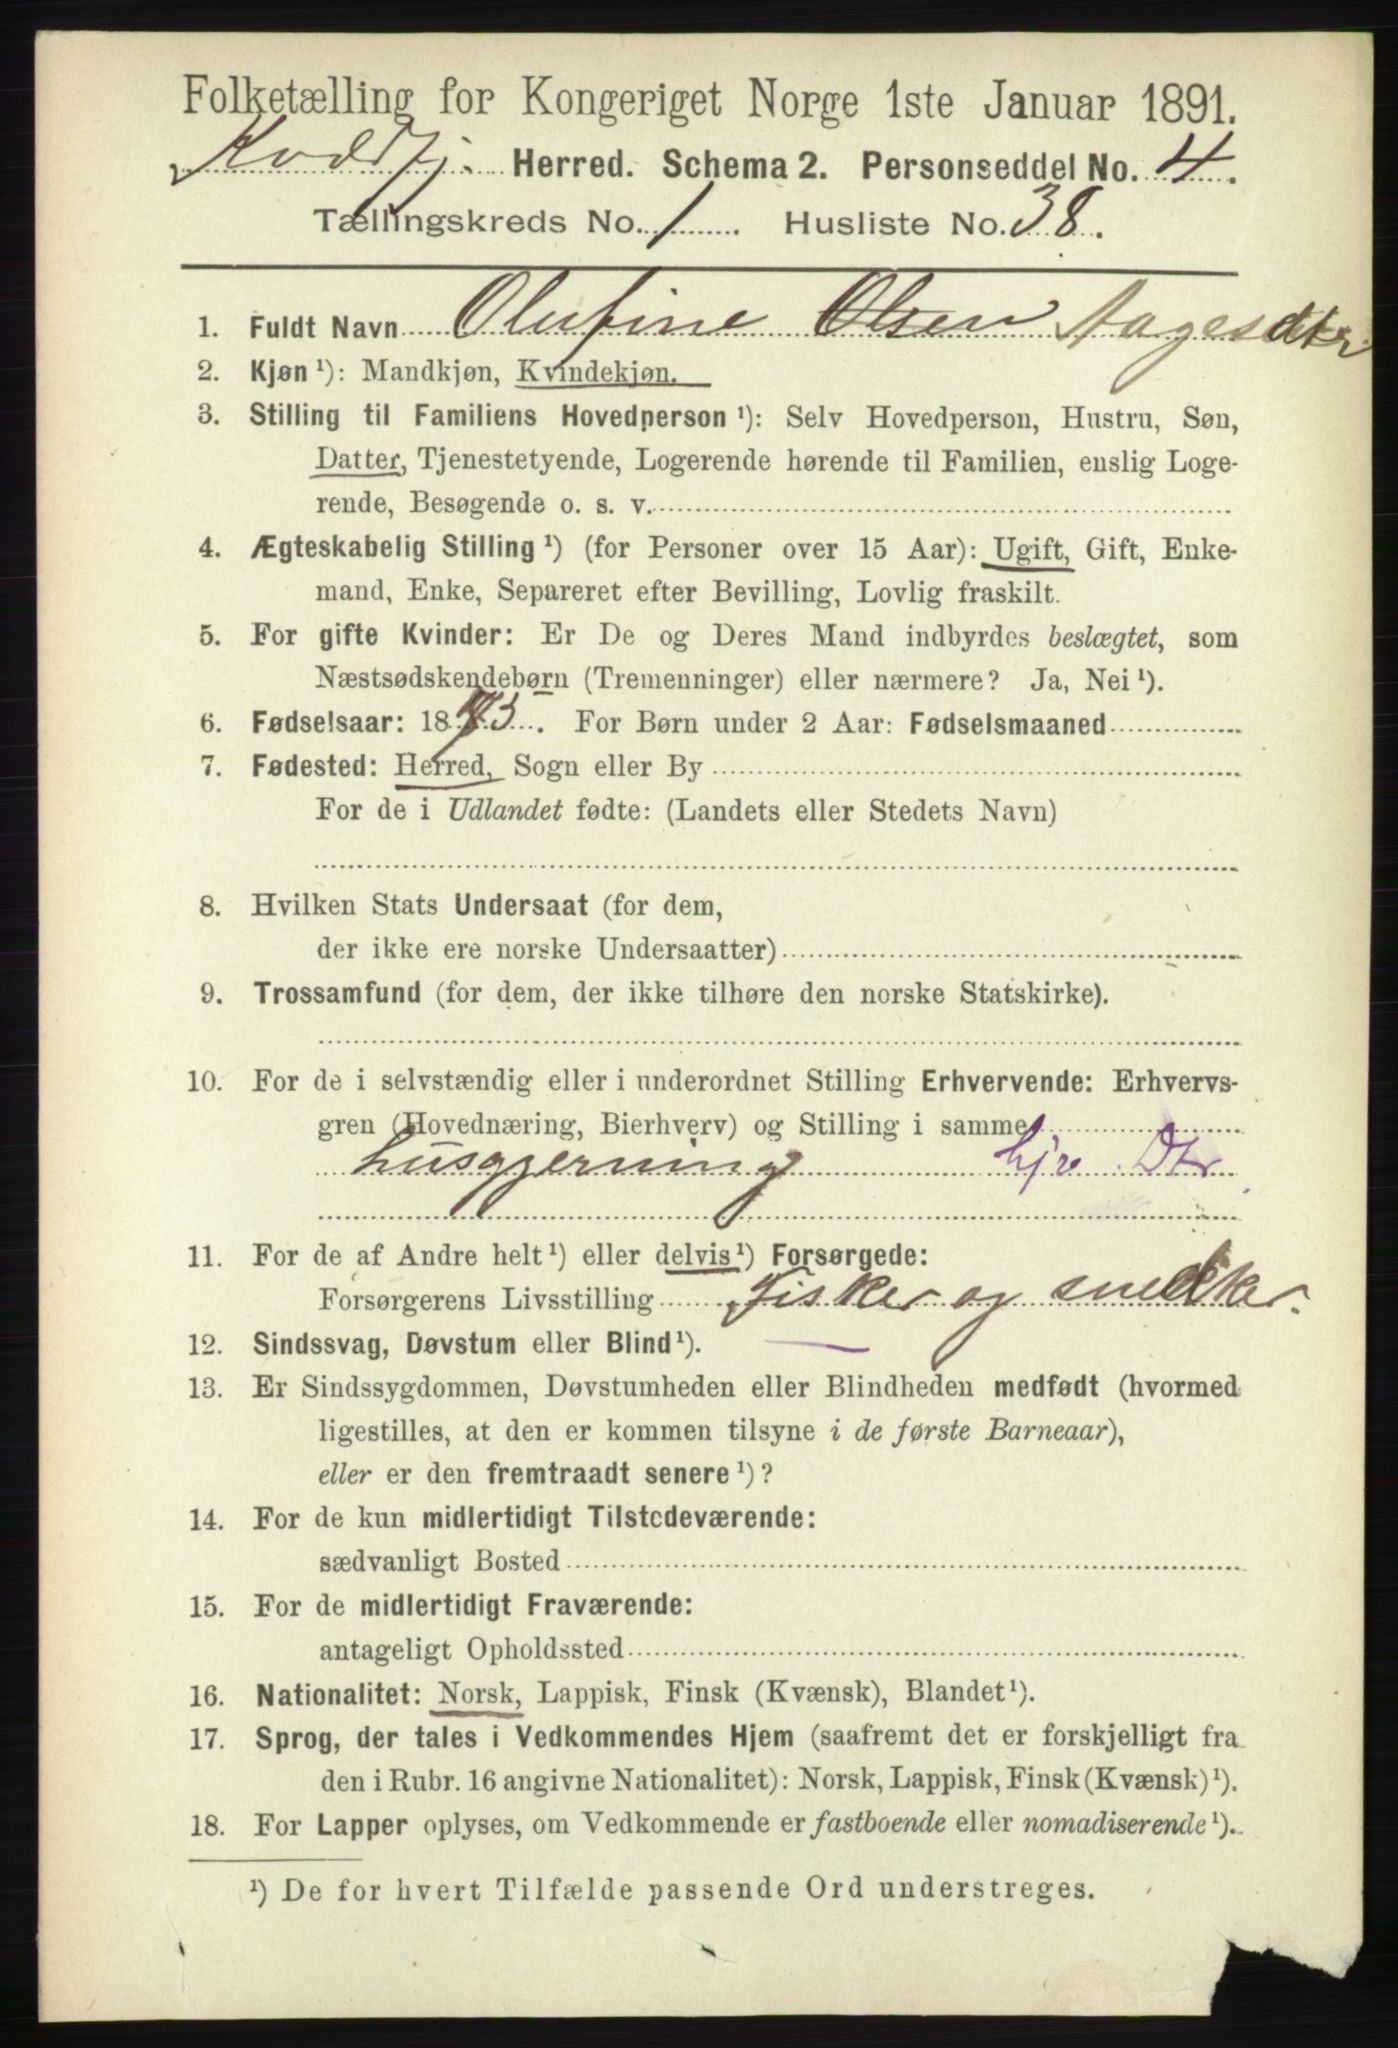 Folketælling for Kongeriget Norge 1ste Januar 1891.
Kvædfj. Herred. Schema 2. Personseddel No. 4.
Tællingskreds No. 1. Husliste No. 38.
1. Fuldt Navn Olufine Olsen Aagesdtr
2. Kjøn ¹): Mandkjøn, Kvindekjøn.
3. Stilling til Familiens Hovedperson ¹): Selv Hovedperson, Hustru, Søn,
Datter, Tjenestetyende, Logerende hørende til Familien, enslig Loge-
rende, Besøgende o. s. v.
4. Ægteskabelig Stilling ¹) (for Personer over 15 Aar): Ugift, Gift, Enke-
mand, Enke, Separeret efter Bevilling, Lovlig fraskilt.
5. For gifte Kvinder: Er De og Deres Mand indbyrdes beslægtet, som
Næstsødskendebørn (Tremenninger) eller nærmere? Ja, Nei ¹).
6. Fødselsaar: 1873. For Børn under 2 Aar: Fødselsmaaned
7. Fødested: Herred, Sogn eller By
For de i Udlandet fødte: (Landets eller Stedets Navn)
8. Hvilken Stats Undersaat (for dem,
der ikke ere norske Undersaatter)
9. Trossamfund (for dem, der ikke tilhøre den norske Statskirke).
10. For de i selvstændig eller i underordnet Stilling Erhvervende: Erhvervs-
gren (Hovednæring, Bierhverv) og Stilling i samme
husgjerning hjv. Dtr
11. For de af Andre helt ¹) eller delvis ¹) Forsørgede:
Forsørgerens Livsstilling Fisker og snedker.
12. Sindssvag, Døvstum eller Blind ¹).
13. Er Sindssygdommen, Døvstumheden eller Blindheden medfødt (hvormed
ligestilles, at den er kommen tilsyne i de første Barneaar),
eller er den fremtraadt senere ¹)?
14. For de kun midlertidigt Tilstedeværende:
sædvanligt Bosted
15. For de midlertidigt Fraværende:
antageligt Opholdssted
16. Nationalitet: Norsk, Lappisk, Finsk (Kvænsk), Blandet ¹).
17. Sprog, der tales i Vedkommendes Hjem (saafremt det er forskjelligt fra
den i Rubr. 16 angivne Nationalitet): Norsk, Lappisk, Finsk (Kvænsk) ¹).
18. For Lapper oplyses, om Vedkommende er fastboende eller nomadiserende ¹).
¹) De for hvert Tilfælde passende Ord understreges.